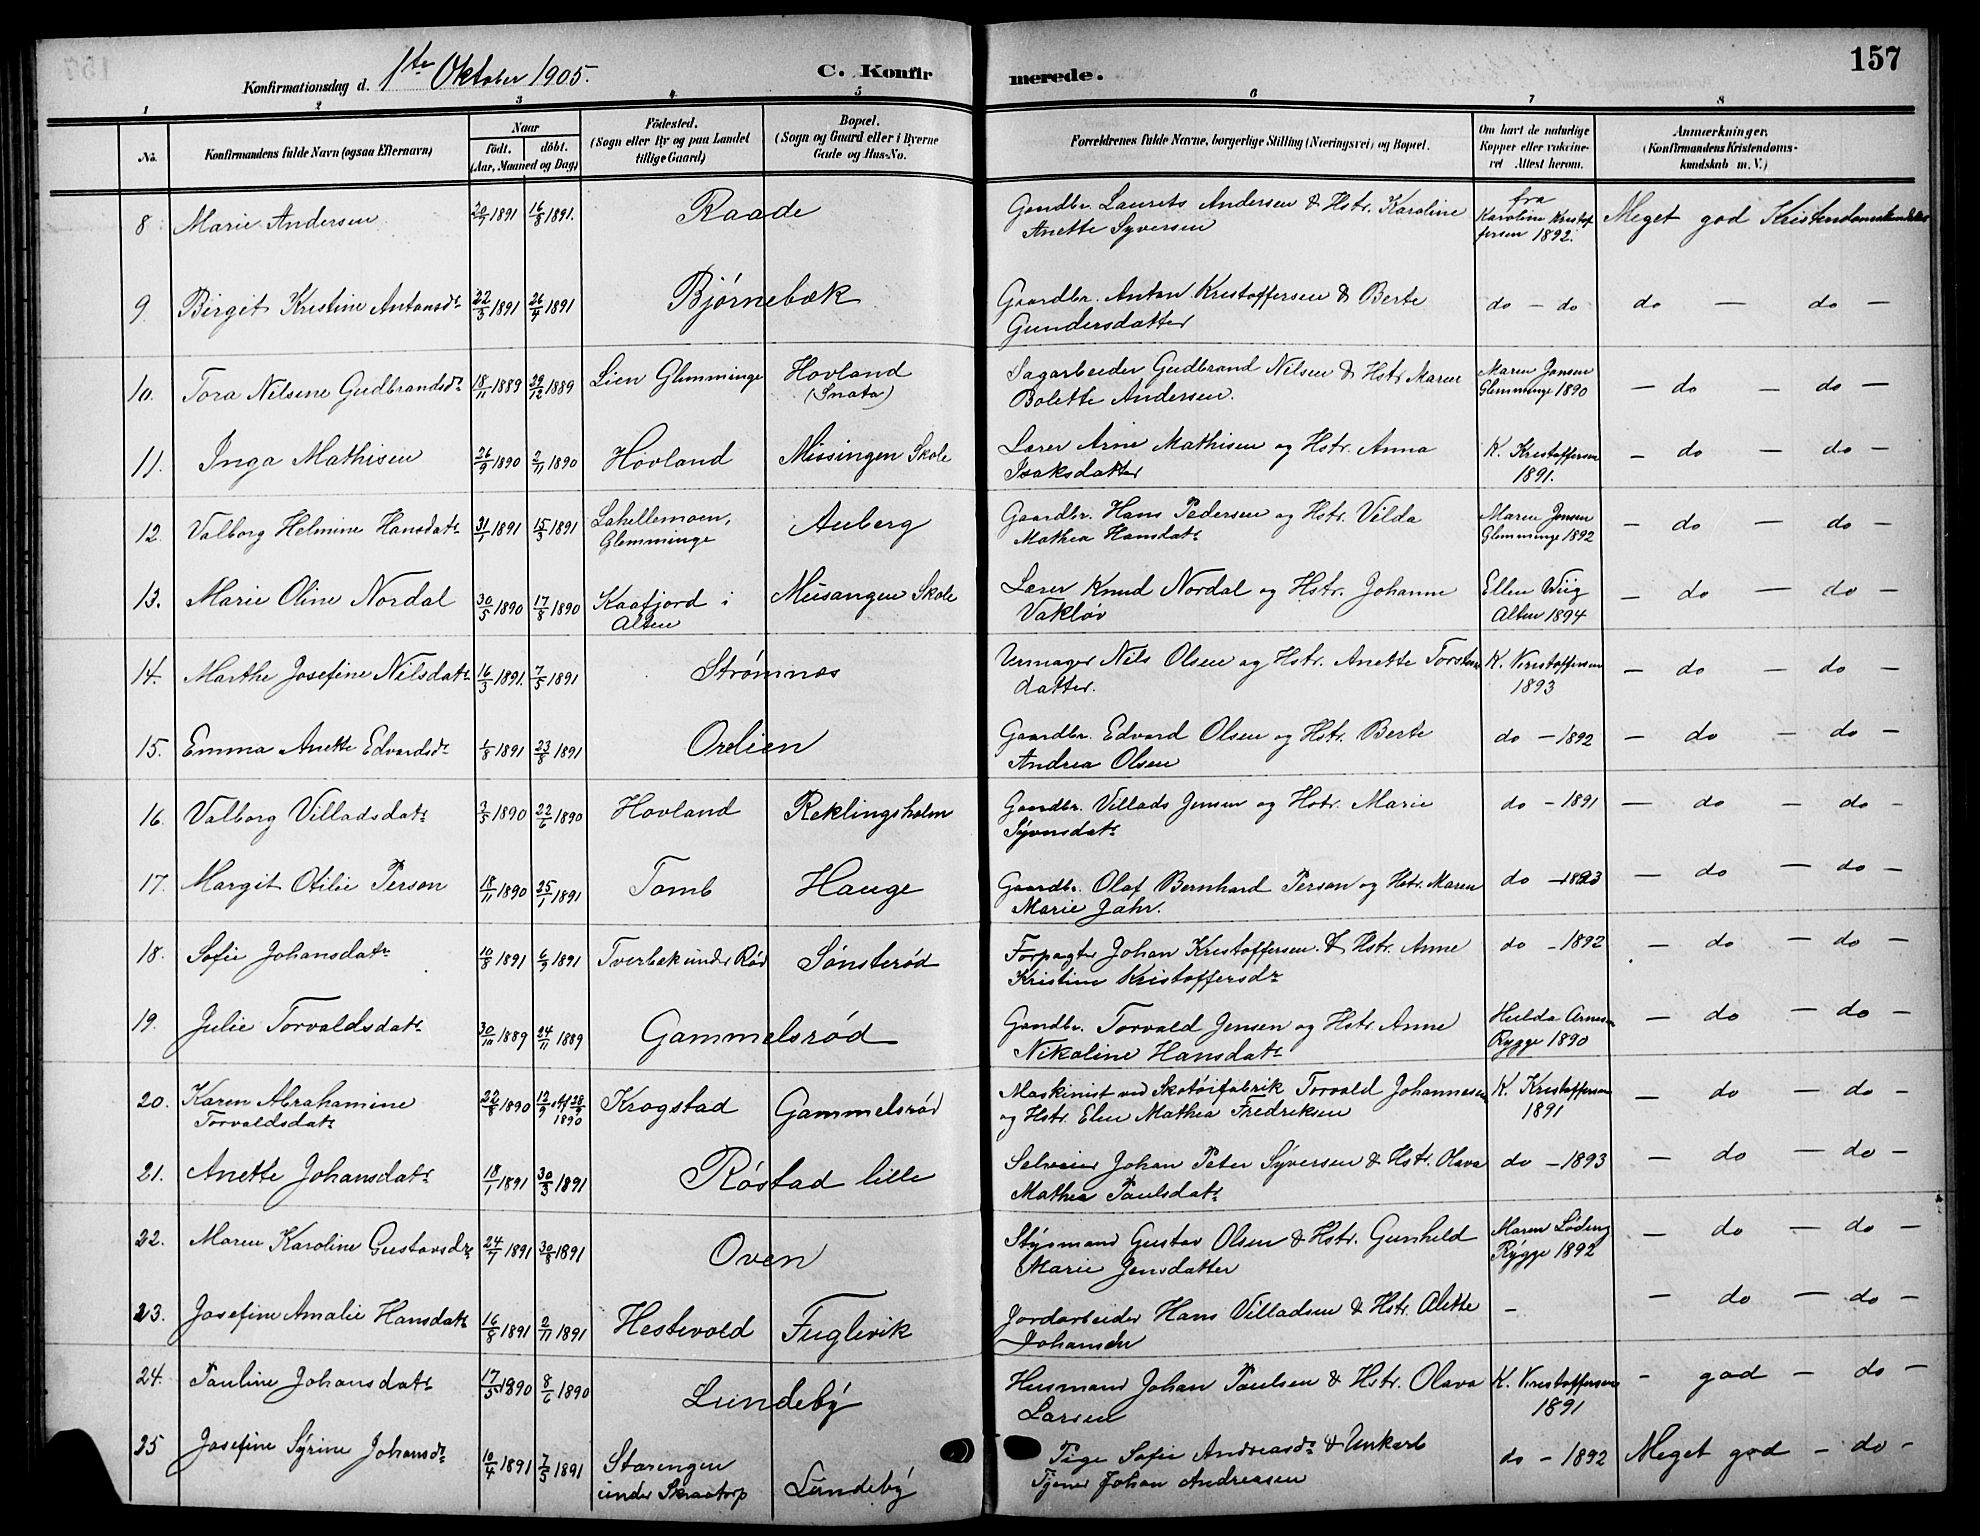 157
Konfirmationsdag d. 1ste Oktober 1905.
C. Konfirmerede.
1 2 3 4 5 6 7 8
No.
Konfirmandens fulde Navn (ogsaa Efternavn)
Naar
født. døbt.
(Aar, Maaned og Dag)
Fødested.
(Sogn eller By og paa Landet
tillige Gaard)
Bopæl.
(Sogn og Gaard eller i Byerne
Gade og Hus-No.
Forældrenes fulde Navne, borgerlige Stilling (Næringsvei) og Bopæl.
Om havt de naturlige
Kopper eller vakcine-
ret Attest herom.
Anmærkninger.
(Konfirmandens Kristendoms-
kundskab m. V.)
8 Marie Andersen 20/7 1891 16/8 1891. Raade Gaardbr. Laurets Andersen & Hstr. Karoline
Anette Syversen
fra
Karoline Kristof
fersen 1892.
Meget god Kristendomskundskab
9. Birgit Kristine Antonsdr 22/3 1891 26/4 1891 Bjørnebæk Gaardbr. Anton Kristoffersen & Berte
Gundersdatter
do - do do - do -
10. Tora Nilsine Gudbrandsdr 18/11 1889 29/12 1889 Lien Glemminge Hovland
(Snata)
Sagarbeider Gudbrand Nilsen & Hstr Maren
Bolette Andersen.
Maren Jonsen
Glemminge 1890
- do - do -
11. Inga Mathisen 26/9 1890 2/11 1890 Hovland Missingen Skole Lærer Arne Mathisen og Hstr. Anna
Isaksdatter
K. Kristoffersen
1891.
- do - do -
12. Valborg Helmine Hansdatr 31/1 1891 15/3 1891 Lahellemoen,
Glemminge
Auberg
Gaardbr. Hans Pedersen og Hstr. Vilda
Mathea Hansdatr
Maren Jensen
Glemminge 1892
- do - do -
13. Marie Oline Nordal 30/5 1890 17/8 1890 Kaafjord i
Alten
Missingen Skole
Lærer Knud Nordal og Hstr. Johanne
Vakløv
Ellen Wiig
Alten 1894
- do - do -
14. Marthe Josefine Nilsdatr 16/3 1891. 7/5 1891 Strømnæs Urmager Nils Olsen og Hstr. Anette Torsten
datter.
K. Kristoffersen
1893
- do - do -
15. Emma Anette Edvardsdr 1/8 1891 23/8 1891 Ørelien Gaardbr. Edvard Olsen og Hstr. Berte
Andrea Olsen
do - 1892 - do - do -
16. Valborg Villadsdatr 3/5 1890 22/6 1890 Hovland Reklingsholm Gaardbr. Villads Jensen og Hstr. Marie
Syversdatr
do - 1891 - do - do -
17. Margit Otilie Person 18/11 1890 25/1 1891 Tomb Hauge Gaardbr. Olaf Bernhard Person og Hstr. Maren
Marie Jahr.
do - 1893 - do - do -
18. Sofie Johansdatr 10/8 1891 6/9 1891 Tverbæk under Rød Sønsterød Forpagter Johan Kristoffersen. & Hstr. Anne
Kristine Kristoffersdr
do - 1892 - do - do -
19. Julie Torvaldsdatr 30/10 1889 24/11 1889 Gammelsrød Gaardbr. Torvald Jensen og Hstr Anne
Nikoline Hansdatr
Hulda Arnesen
Rygge 1890
- do - do -
20. Karen Abrahamine
Torvaldsdatr
22/8 1890 12/9 og 28/9
1890
Krogstad Gammelsrød
Maskinist ved Skotøifabrik Torvald Johannesen
og Hstr. Elen Mathea Fredriksen
K. Kristoffersen
1891
- do - do -
21. Anette Johansdatr 18/1 1891 30/3 1891 Røstad lille Selveier Johan Peter Syversen & Hstr. Olava
Mathea Paulsdatr
do - 1893 - do - do -
22. Maren Karoline Gustavsdr 24/7 1891 30/8 1891 Oven Stysmand Gustav Olsen & Hstr. Gunhild
Marie Jensdatter
Maren Løding
Rygge 1892
- do - do -
23. Josefine Amalie Hansdatr 16/8 1891 2/11 1891 Hestevold Fuglevik Jordarbeider Hans Villadsen & Hstr. Alette
Johansdr
- - do - do -
24. Pauline Johansdatr 17/5 1890 8/6 1890 Lundeby Husmand Johan Paulsen & Hstr. Olava
Larsen
K. Kristoffersen
1891
- god - do -
25 Josefine Syrine Johansdr 10/4 1891 7/5 1891 Starengen
under Skraatorp
Lundeby
Pige Sofie Andreasdr & Unkarl
Tjener Johan Andreasen
do - 1892 Meget god - do -